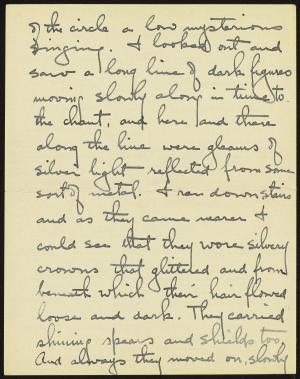 of the circle a low mysterious
singing. I looked out and
saw a long line of dark figures
moving slowly along in time to
the chant, and here and there
along the line were gleams of
silver light reflected from some
sort of metal. I ran down stairs
and as they came nearer I
could see that they wore silvery
crowns that glittered and from
beneath which their hair flowed
loose and dark. They carried
shining spears and shields too,
And always they moved on, slowly